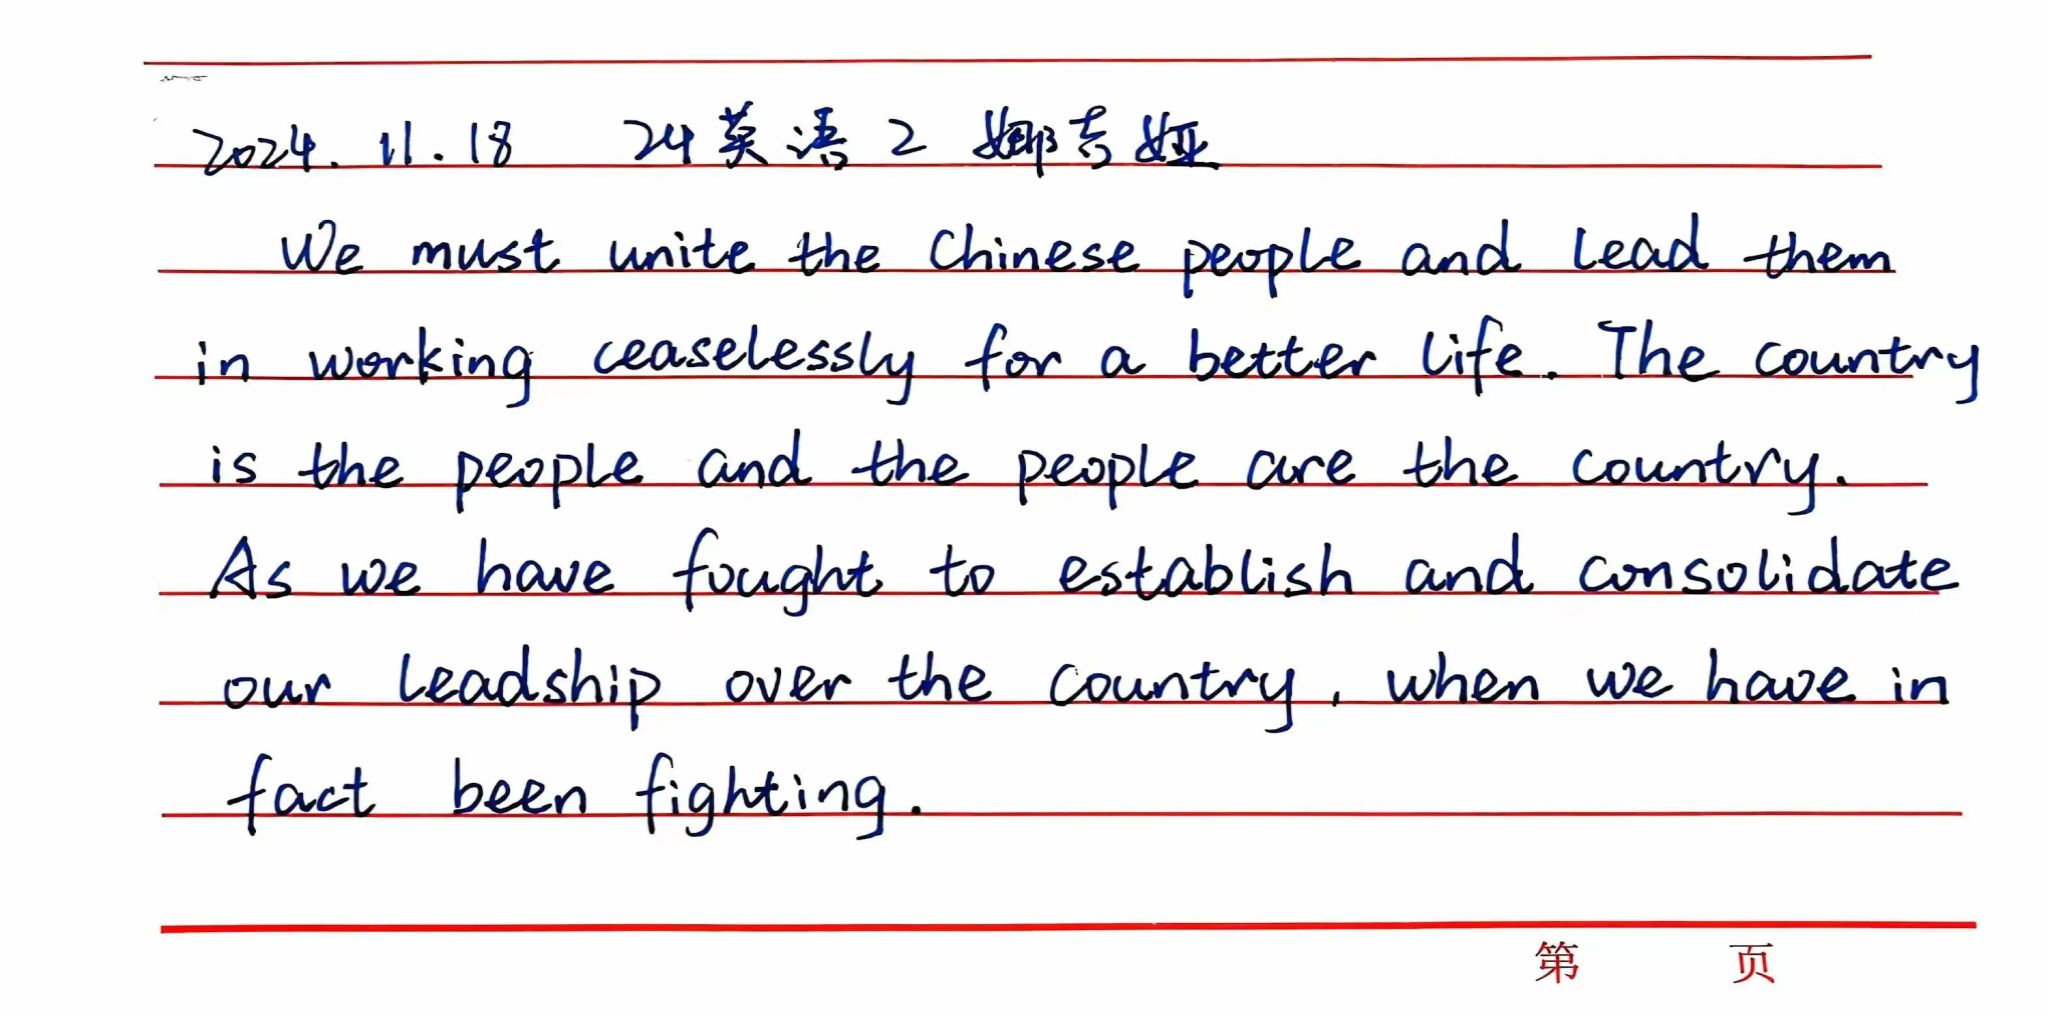 2024.11.18 24英语2 娜吉娅
We must unite the Chinese people and lead them
in working ceaselessly for a better life. The country
is the people and the people are the country.
As we have fought to establish and consolidate
our leadship over the country, when we have in
fact been fighting.
第 页